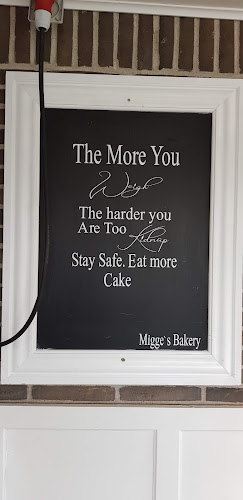 The More You
Weigh
The harder you
Are Too
Kidnap
Stay Safe. Eat more
Cake
Migge`s Bakery